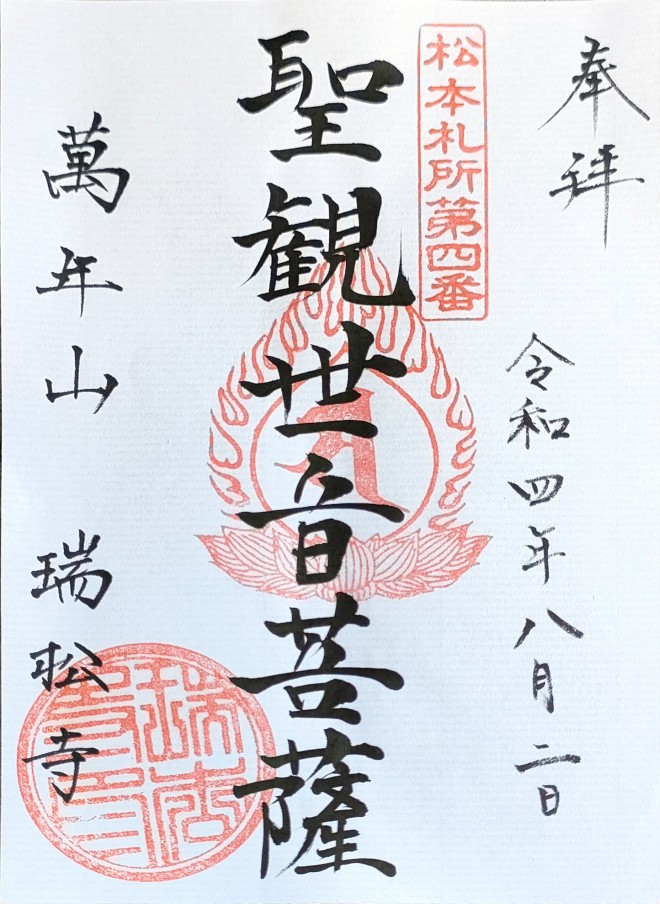 奉拝
令和四年八月二日
松本札所第四番
聖観世音菩薩
萬年山
瑞松寺